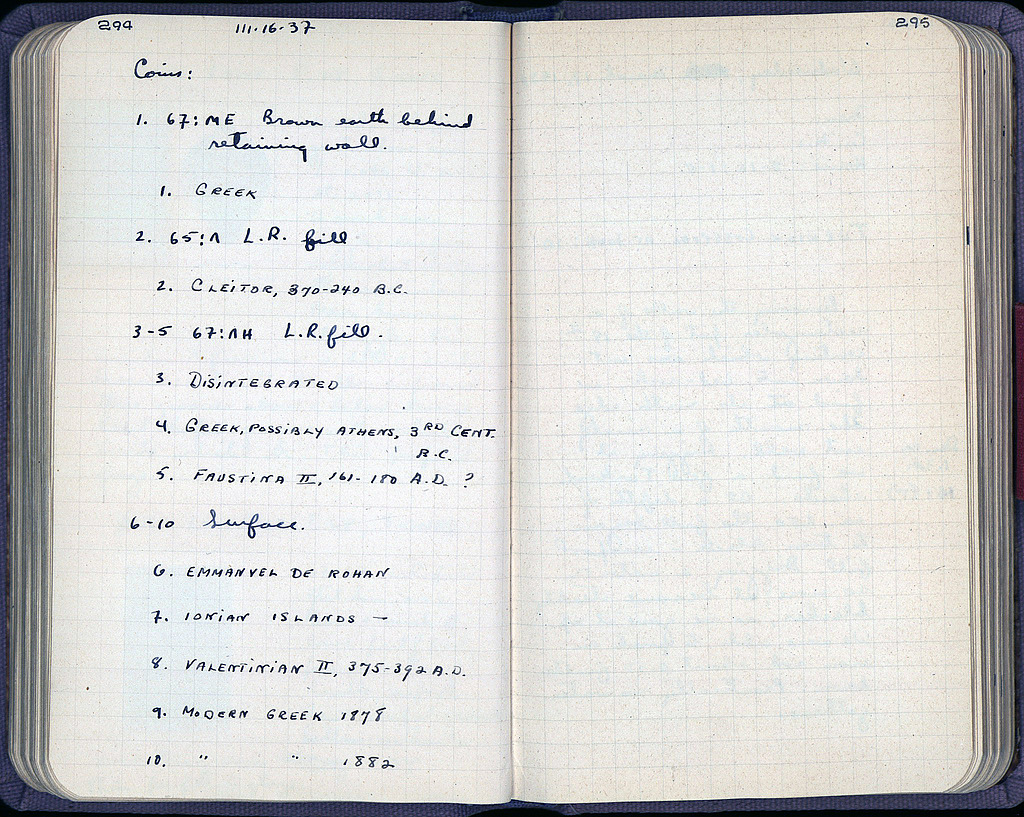 294
111·16·37
295
Coins:
1. 67:ME Brown earth behind
retaining wall.
1. GREEK
2. 65:Λ L.R. fill
2. CLEITOR, 370-240 B.C.
3-5 67:ΛH L.R. fill.
3. DISINTEGRATED
4. GREEK, POSSIBLY ATHENS, 3RD CENT.
B.C.
5. FAUSTINA II, 161-180 A.D. ?
6-10 Surface.
6. EMMANVEL DE ROHAN
7. IONIAN ISLANDS —
8. VALENTINIAN II, 375-392 A.D.
9. MODERN GREEK 1878
10. " " 1882